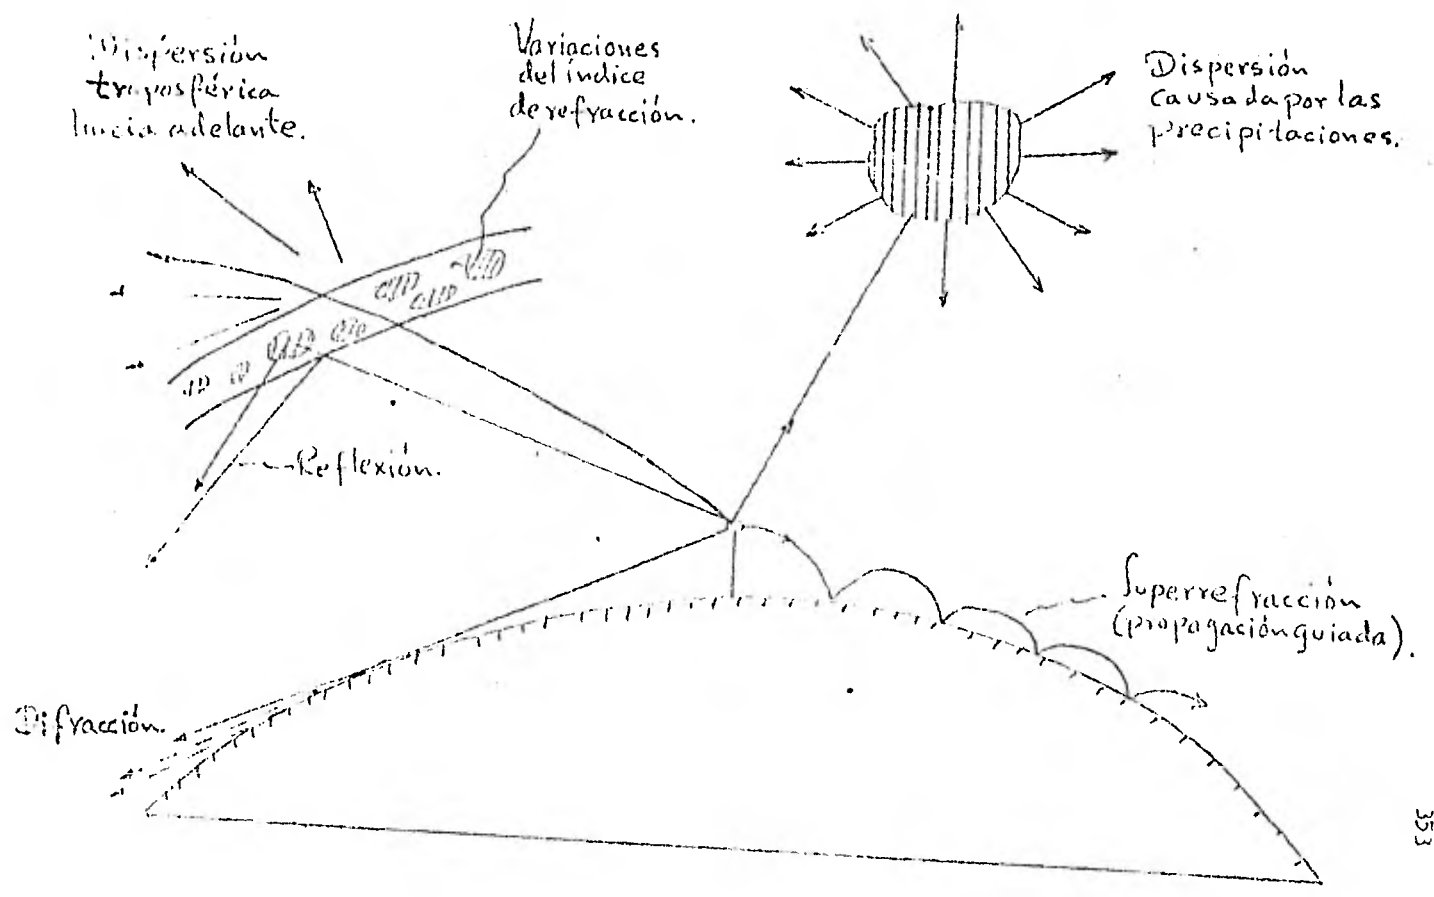 Dispersión
troposférica
hacia adelante.
Variaciones
del índice
de refracción.
Dispersión
causada por las
precipitaciones.
Reflexión.
Superrefracción
(propagación guiada).
Difracción.
353